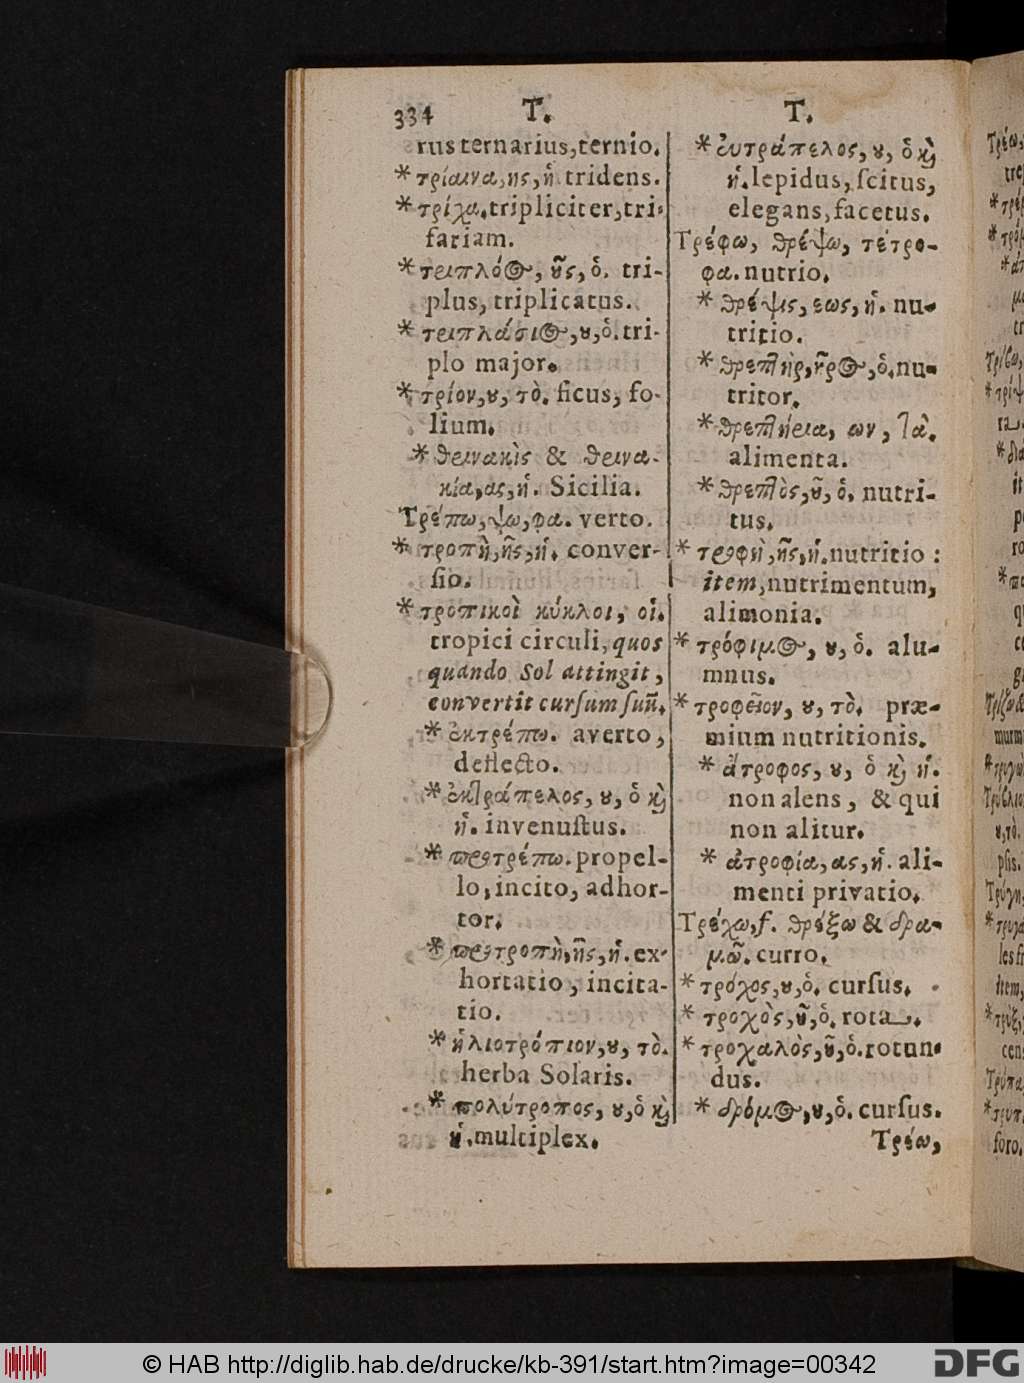 334 T. T.
rus ternarius, ternio.
* τρίαινα, ης, ἡ tridens.
* τρίχα. tripliciter, tri-
fariam.
* τριπλόος, οῦς, ὁ. tri-
plus, triplicatus.
* τριπλάσιος, ου, ὁ. tri-
plo major.
* τρίον, ου, τὸ. ficus, fo-
lium.
* θρινακὶς & θρινα-
κία, ας, ἡ. Sicilia.
Τρέπω, ψω, φα. verto.
* τροπὴ, ῆς, ἡ. conver-
sio.
* τροπικοὶ κύκλοι, οἱ.
tropici circuli, quos
quando Sol attingit,
convertit cursum suũ.
* ἐκτρέπω. averto,
deflecto.
* ἐκτράπελος, ου, ὁ καὶ
ἡ. invenustus.
* προτρέπω. propel-
lo, incito, adhor-
tor.
* προτροπὴ, ῆς, ἡ. ex-
hortatio, incita-
tio.
* ἡλιοτρόπιον, ου, τὸ.
herba Solaris.
* πολύτροπος, ου, ὁ καὶ
ἡ. multiplex.
* εὐτράπελος, ου, ὁ καὶ
ἡ. lepidus, scitus,
elegans, facetus.
Τρέφω, θρέψω, τέτρο-
φα. nutrio.
* θρέψις, εως, ἡ. nu-
tritio.
* θρεπτὴρ, ῆρος, ὁ. nu-
tritor.
* θρεπτήρια, ων, τὰ.
alimenta.
* θρεπτὸς, οῦ, ὁ. nutri-
tus.
* τροφὴ, ῆς, ἡ. nutritio:
item, nutrimentum,
alimonia.
* τρόφιμος, ου, ὁ. alu-
mnus.
* τροφεῖον, ου, τὸ. præ-
mium nutritionis.
* ἄτροφος, ου, ὁ καὶ ἡ.
non alens, & qui
non alitur.
* ἀτροφία, ας, ἡ. ali-
menti privatio.
Τρέχω, f. θρέξω & δρα-
μῶ. curro.
* τρόχος, ου, ὁ. cursus.
* τροχὸς, οῦ, ὁ. rota.
* τροχαλὸς, οῦ, ὁ. rotun-
dus.
* δρόμος, ου, ὁ. cursus.
Τρέω,
© HAB http://diglib.hab.de/drucke/kb-391/start.htm?image=00342
DFG